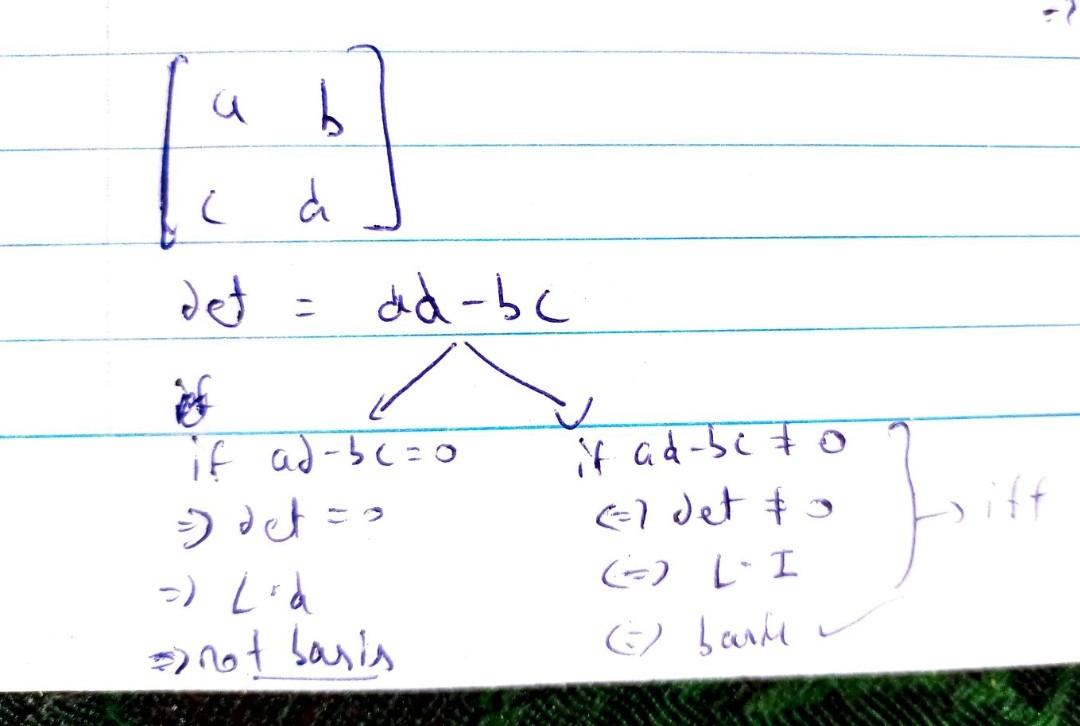 [ a b
c d ]
det = ad-bc
if ad-bc=0
⇒ det = 0
⇒ L.d
⇒ not basis
if ad-bc ≠ 0
⇔ det ≠ 0
⇔ L.I
⇔ basis ✓
→ iff